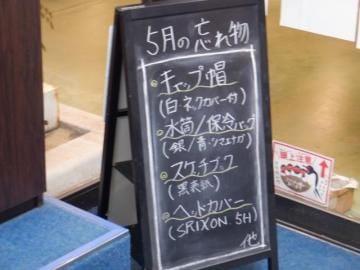 5月の忘れ物
キャップ帽
(白ネックカバー付)
水筒/保冷バッグ
(銀/青・シマエナガ)
スケッチブック
(黒表紙)
ヘッドカバー
(SRIXON 5H)
他
頭上注意